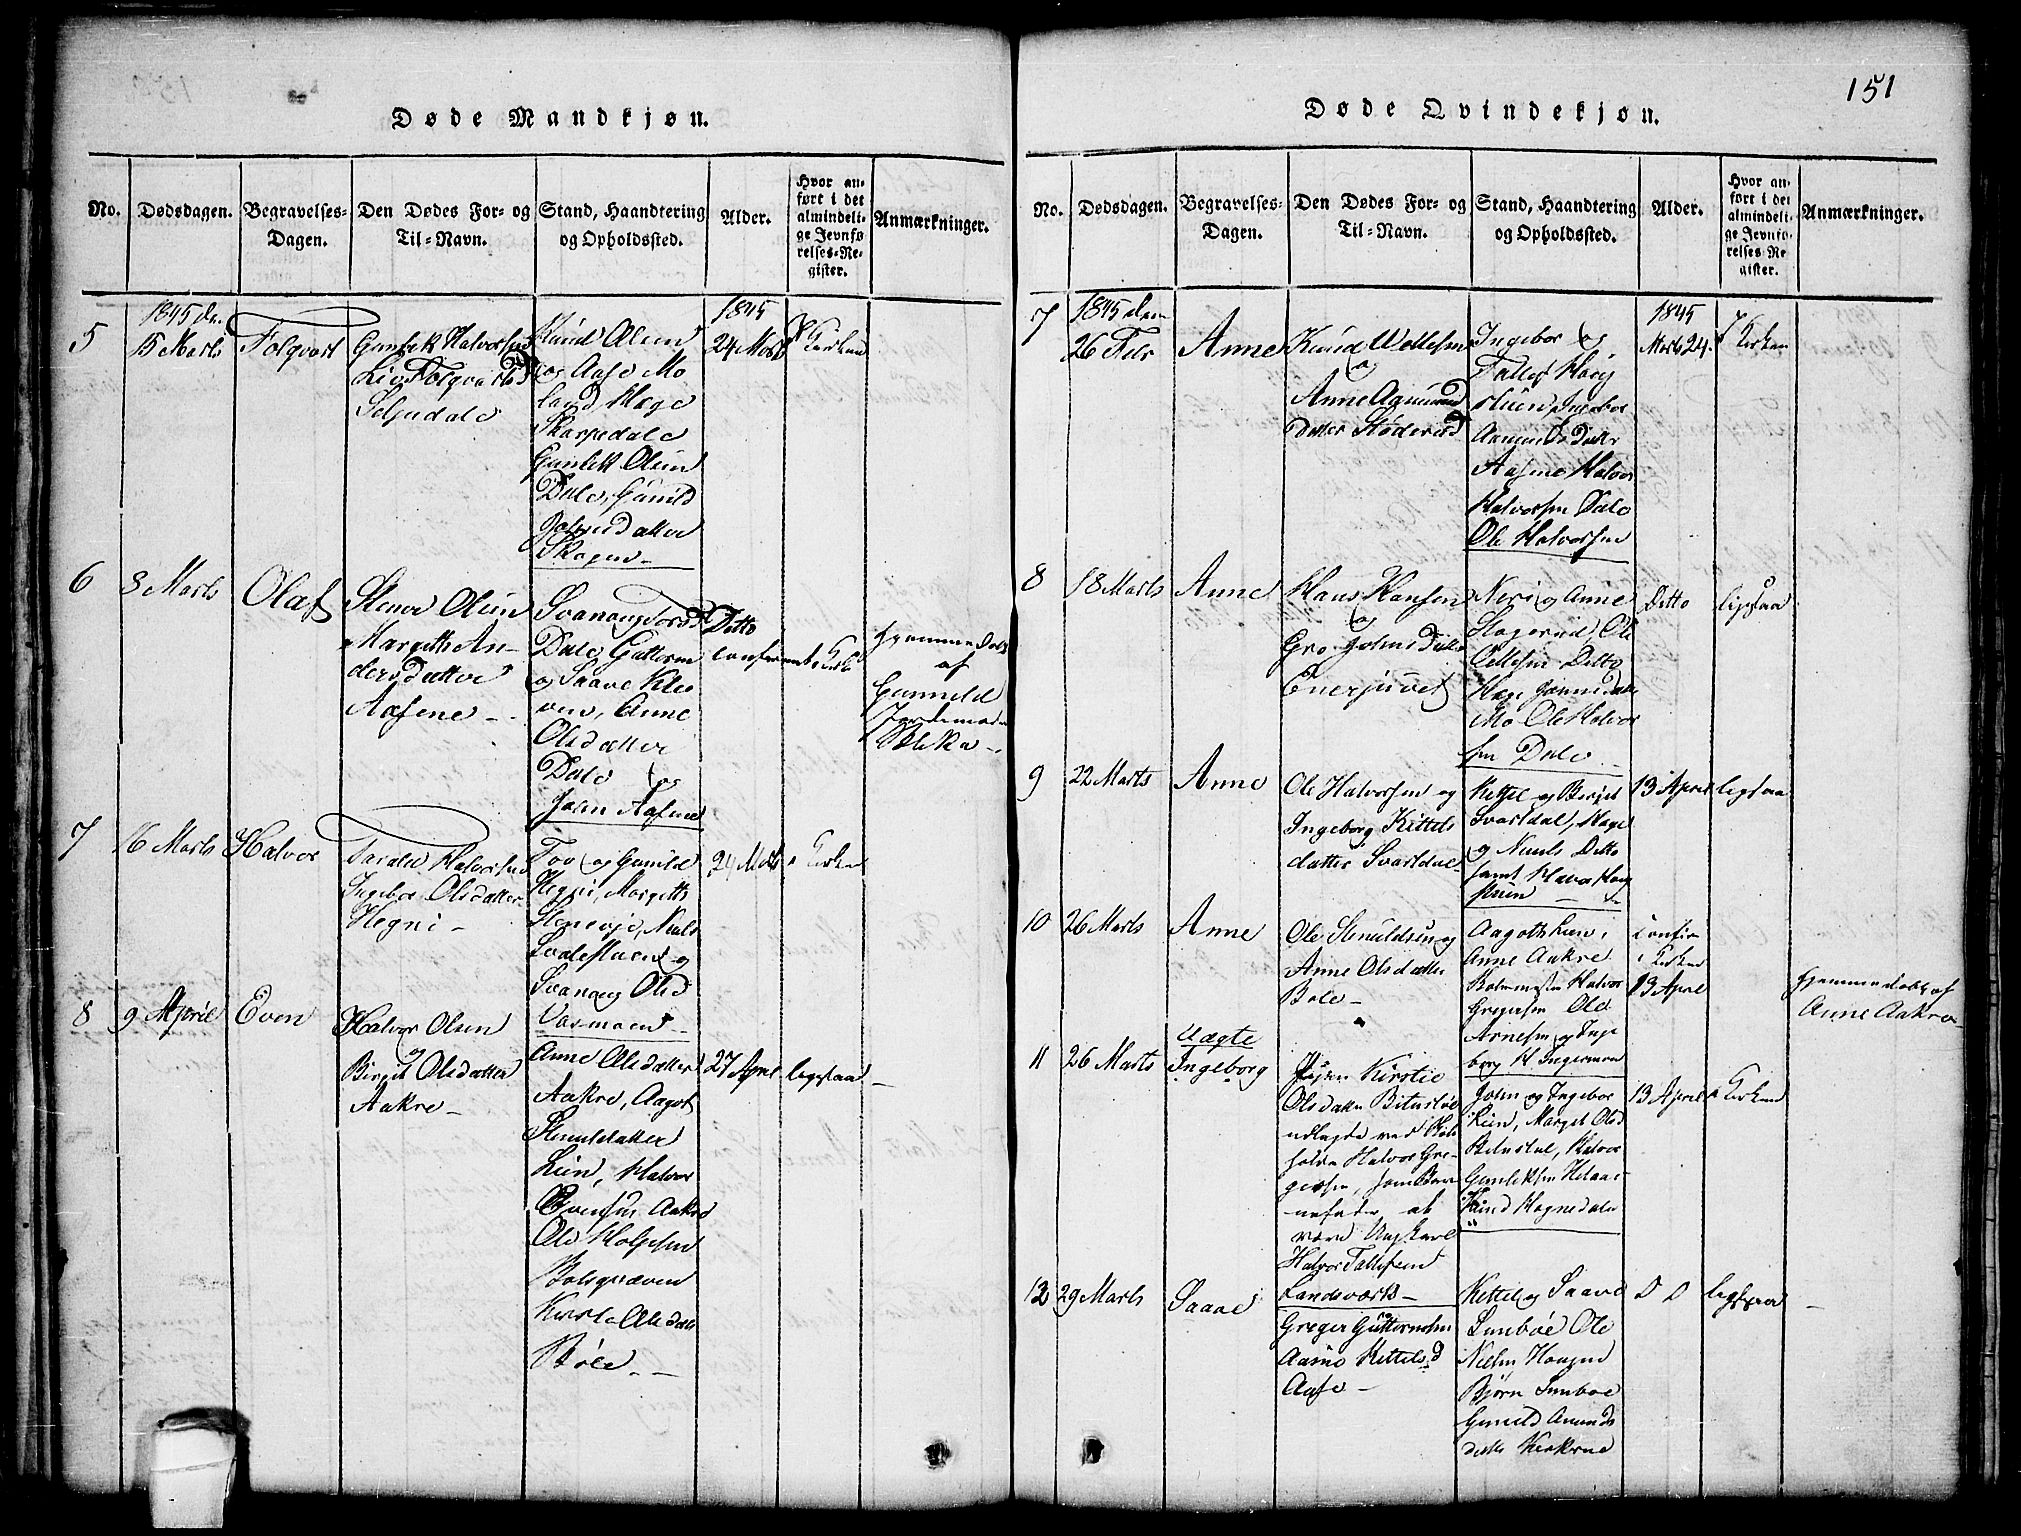 151
Døde Mandkjøn.
No. Dødsdagen. Begravelses-Dagen. Den Dødes For- og Til-Navn. Stand, Haandtering og Opholdssted. Alder. Hvor anført i det almindelige Jevnførelses-Register. Anmærkninger.
5
1845 den
15 Marts
Folqvart
Gunlek Halvorsen
Liv Folqvartsd
Seljudale
Knud Olsen
og Aase Mo
land, Hæge
Skarpedale
Gunlek Olsen
Dale, Gunild
Johnsdatter
Skogen
1845
24 Marts
i Kirken
6
8 Marts
Olaf
Stener Olsen
Margith An-
dersdatter
Aasene
Svanaug
Dale, Guttorm
og Saave Kle
ven, Anne
Olsdatter
Dale og
John Aasene
Ditto
confirmert i Kirke
Hjemmedøbt
af
Gunneld
Jordemoder
7
16 Marts
Halvor
Tarald Halvorsen
Ingebor Olsdatter
Hegni
Tov og Gunild
Hegni, Margith
Niels
og
Svanaug Olsd
24 Marts
i Kirken
8
9 April
Even
Halvor Olsen
og
Birgit Olsdatter
Aakre
Anne Olsdatter
Aakre, Aagot
Stenuldatter
Lien, Halvor
Evensen Aakre
Ole Holgesen
Kirste Olsdatt
Bøle
27 April
ligesaa
Døde Qvindekjøn.
No. Dødsdagen. Begravelses-Dagen. Den Dødes For- og Til-Navn. Stand, Haandtering og Opholdssted. Alder. Hvor anført i det almindelige Jevnførelses-Register. Anmærkninger.
7
1845 den
26 Febr
Anne
Knud Vettesen
og
Anne Aamund
Datter Støderud
Ingebor og
Tallef Høig
stuen, Ingebor
Aamunds Datter
Aasene Halvor
Halvorsen Dale
Ole Halvorsen
1845
Marts 24.
i Kirken
8
18 Marts
Anne
Hans Hansen
og
Gro Johnsdatter
Enerjuvet
Neri og Anne
Hagerud, Ole
Ollesen Ditto
Hæge
Mo Ole Halvor
sen Dale
Ditto
ligesaa
9
22 Marts
Anne
Ole Halvorsen og
Ingeborg Kittels
datter Svartdal
Kittel og Berget
Svartdal, Hæge
og Niuls Ditto
samt Halvor Høig
stuen
13 April
ligesaa
10
26 Marts
Anne
Ole Stenuldsen og
Anne Olsdatter
Bøle
Aagoth Lien,
Anne Aakre
Halvor
Gregersen Ole
Arnesen og Inge
borg H Ingerman
confir
i Kirken
13 April
hjemmedøbt af
Anne Aakre
11
26 Marts
Uægte
Ingeborg
Pigen Kirstie
Olsdatter Bitustøl
udlagte ved
Halvor Gre-
gersen, som Bar
nefader, at
være Ungkarl
Halvor Tallefsen
Landsværk
John og Ingebor
Lien, Marget Olsd
Bitustøl, Halvor
Gunleksen
Knud Hognedalen
13 April
i Kirken
12
29 Marts
Saave
Greger Guttormsen
Aasne Kittelsd
Aase
Kittel og Saave
Sunbøe Ole
Nielsen Haugen
Bjørn Sunbøe
Gunild Amunds
datter
D D
ligesaa